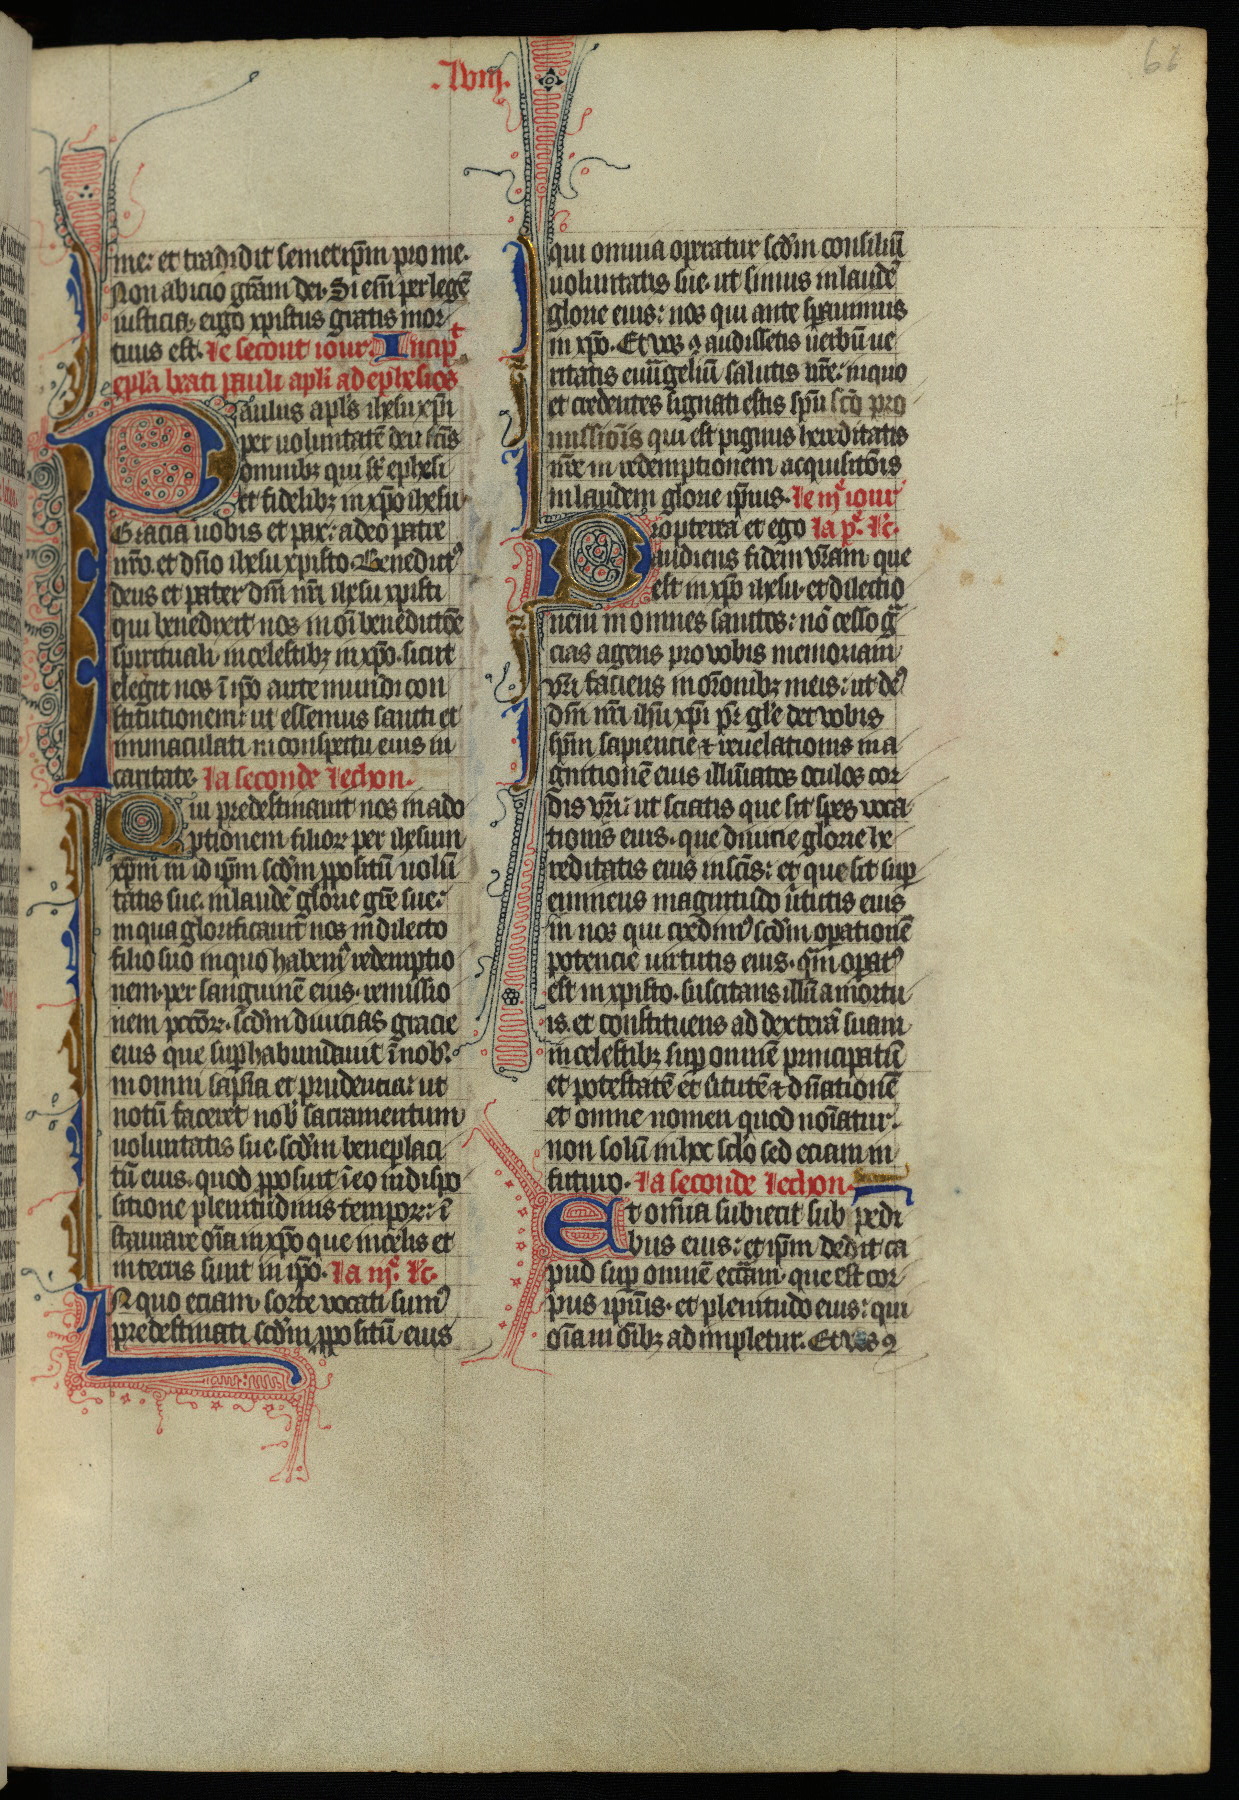 .lviij.
67
me: et tradidit semetip̄m pro me.
Non abicio gr̄am dei. Si eni̅ per legē
iusticia, ergo xpistus gratis mor
tuus est. le secont iour Incipt
epl'a beati pauli apl'i ad ephesios
Paulus apl's ihesu xp̄i
per voluntatē dei sc̄is
omnibꝫ qui st̄ ephesi
et fidelibꝫ in xp̄o ihesu.
Gracia uobis et pax: a deo patre
nr̄o. et dn̄o ihesu xpisto. Benedictꝰ
deus et pater dn̄i nr̄i ihesu xpisti
qui benedixit nos in oi̅ benedictōe
spirituali in celestibꝫ in xp̄o. sicut
elegit nos ī ip̄o ante mundi con
stitutionem: ut essemus sancti et
immaculati in conspectu eius in
caritate. la seconde lechon.
Qui predestinauit nos in ado
ptionem filioꝝ per ihesum
xp̄m in id ip̄m scd̄m ꝓpositū uolū
tatis sue. in laudē glorie gr̄e sue:
in qua glorificauit nos in dilecto
filio suo in quo habemꝰ redemptio
nem. per sanguinē eius. remissio
nem pcc̄oꝝ. scd̄m diuicias gracie
eius que suꝑhabundauit ī nob̄.
in omni sap̄ia et prudencia: ut
notū faceret nob̄ sacramentum
uoluntatis sue. scd̄m beneplaci
tū eius. quod ꝓposuit ī eo in dispo
sitione plenitudinis tempoꝝ: ī
staurare oi̅a in xp̄o que in celis et
in terris sunt in ip̄o. la iijͤ. l'c.
IN quo eciam sorte vocati sumꝰ
predestinati scd̄m ꝓpositū eius
qui omnia operatur scd̄m consiliū
uoluntatis sue. ut simus in laudē
glorie eius: nos qui ante sperauimus
in xp̄o. Et vos ꝯ audissetis uerbū ue
ritatis euu̅geliū salutis nr̄e: in quo
et credentes signati estis sp̄u sc̄o pro
missiōis qui est pignus hereditatis
nr̄e in redemptionem acquisitōis
in laudem glorie ip̄ius. le iijͤ iour
Propterea et ego la pͤ. l'c.
audiens fidem vr̄am que
est in xp̄o ihesu. et dilectio
nem in omnes sanctos: nō cesso gr̄
cias agens pro vobis memoriam
vr̄i faciens in orōnibꝫ meis: ut deꝰ
dn̄i nr̄i ihū xp̄i pr̄ gl'e det vobis
sp̄m sapiencie ⁊ reuelationis in a
gnitionē eius illūiatos oculos cor
dis vr̄i: ut sciatis que sit spes voca
tionis eius. que diuicie glorie he
reditatis eius in sc̄is: et que sit suꝑ
eminens magnitudo u̅tutis eius
in nos qui credimꝰ scd̄m oꝑationē
potencie uirtutis eius. quā oꝑatꝰ
est in xpisto. suscitans illū a mortu
is. et constituens ad dexterā suam
in celestibꝫ suꝑ omnē principatū
et potestatē et u̅tutē ⁊ dn̄ationē
et omne nomen quod noi̅atur.
non solū in hoc sc̄lo sed eciam in
futuro. la seconde lechon.
Et om̄ia subiecit sub pedi
bus eius: et ip̄m dedit ca
pud suꝑ omnē eccl̄iam. que est cor
pus ip̄ius. et plenitudo eius: qui
oi̅a in oi̅bꝫ adimpletur. Et vos ꝯ